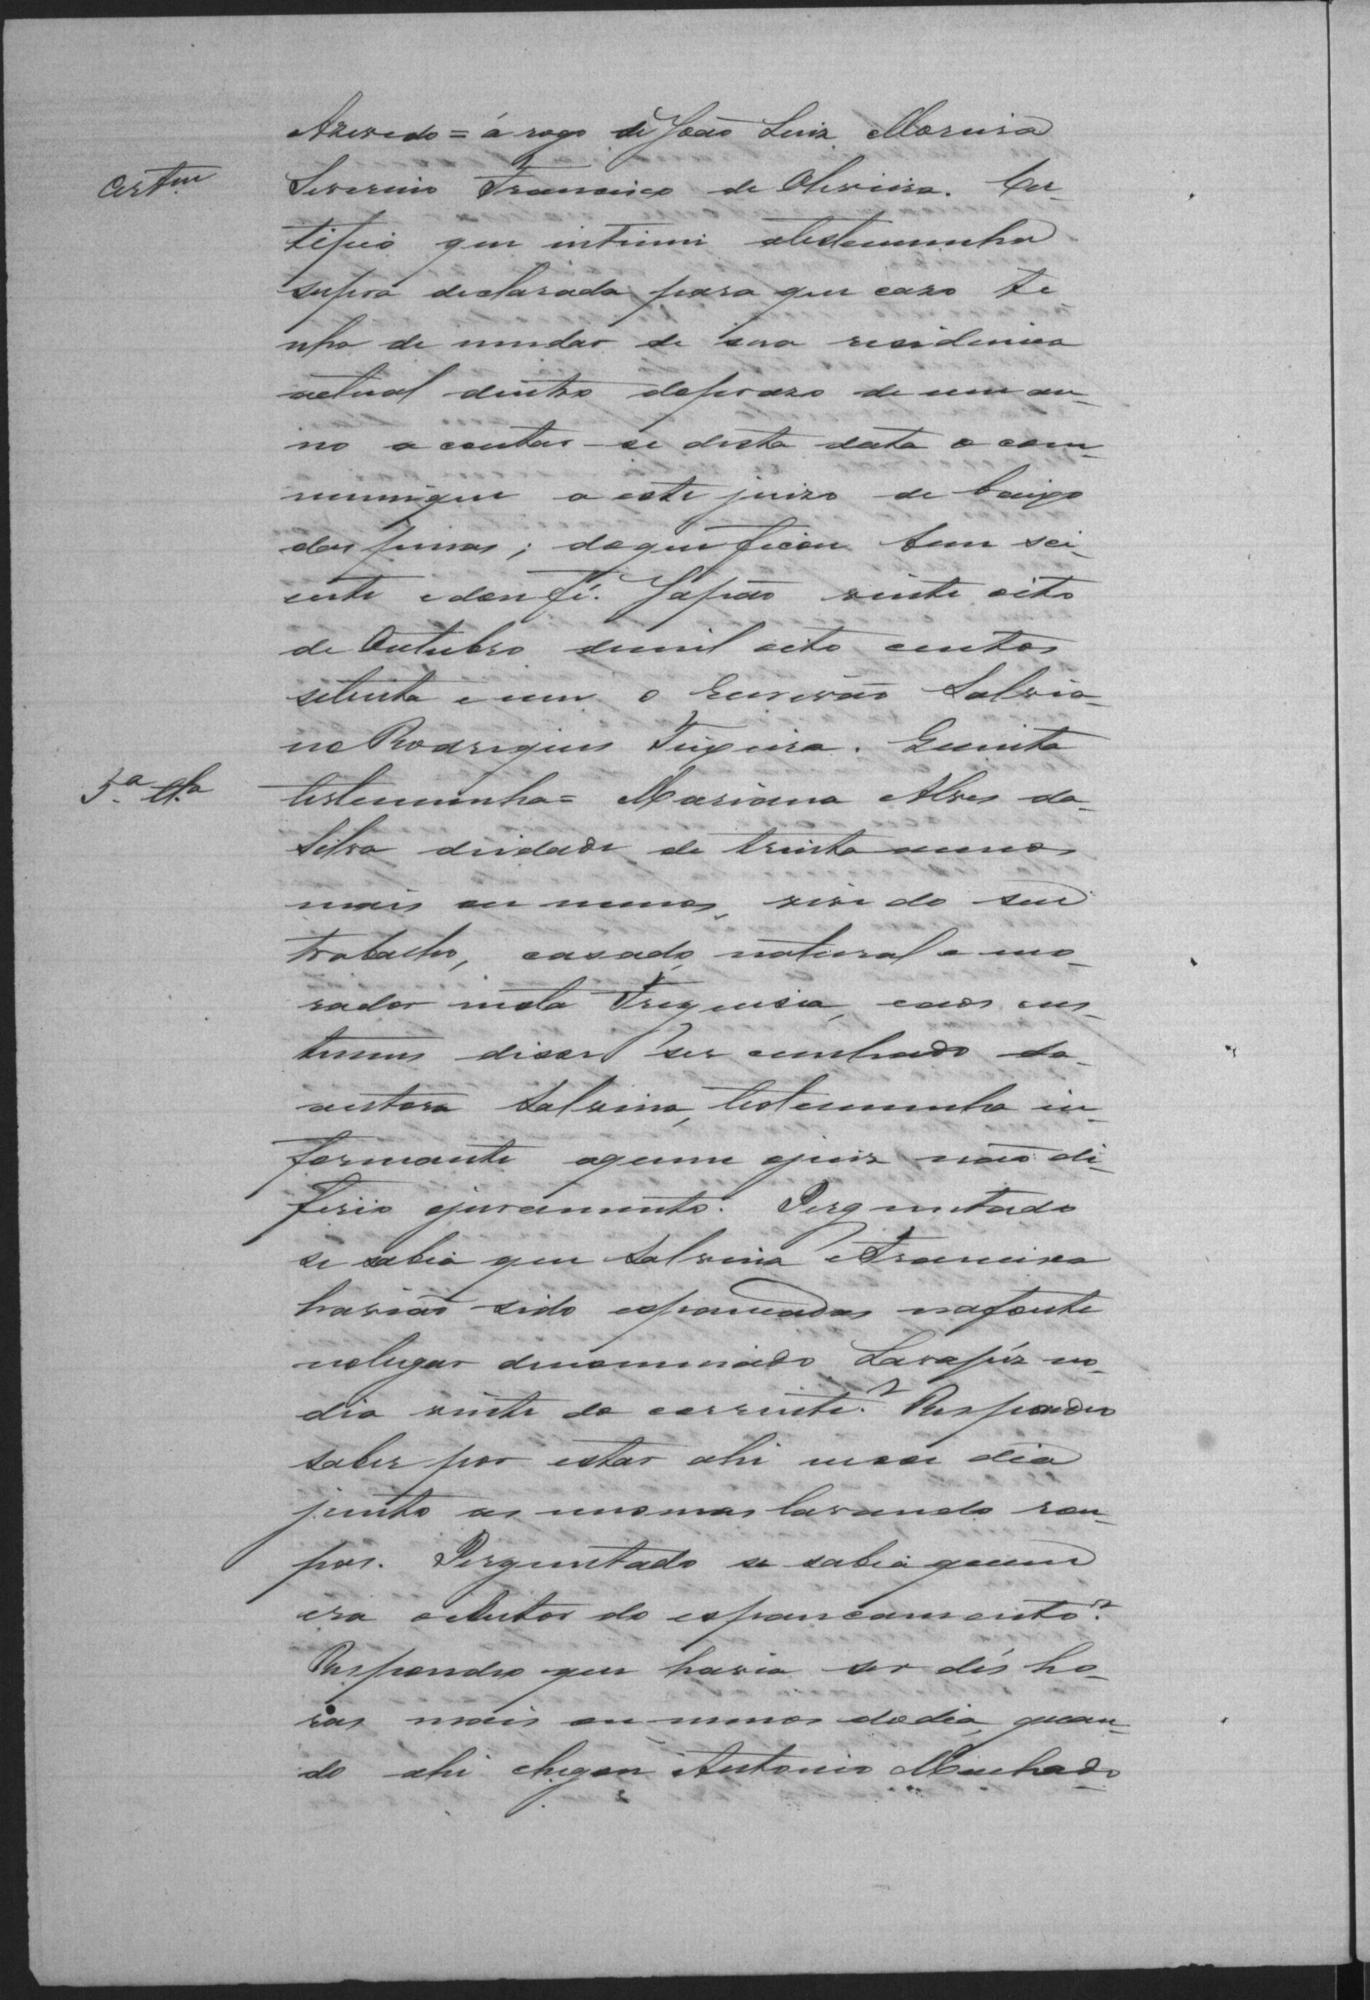 Azevedo = á rogo de João Luiz Moreira
Cert.am
Severino Francisco de Oliveira. Cer-
tifico que intimei atestemunha
supra declarada para que cazo te
nha de mudar de sua residencia
actual dentro doprazo de um an-
no a contar-se desta data o com-
munique a este juizo de baixo
das penas; doque ficou bem sci-
ente edou fé. Japão vinte oito
de Outubro demil oito centos
setenta e um o Escrivão Salvia-
no Rodrigues Teixeira. Quinta
5.a t.ha
testemunha = Mariana Alves da-
Silva deidade de trinta annos
mais ou menos, vive do seu
trabalho, casado, natural e mo-
rador nesta Freguesia, e aos cus-
tumes disse ser cunhado da-
autora Salvina, testemunha in-
formante aquem ojuiz não di-
ferio ojuramento. Perguntado
se sabia que Salvina e Francisca
havião sido espancadas nafonte
nolugar denominado Lavapéz no
dia vinte do corrente? Respondeo
saber por estar ahi nesse dia
junto as mesmas lavando rou-
pas. Perguntado se sabia quem
era o Autor do espancamento?
Respondeo que havia ser dés ho-
ras mais ou menos dodia, quan-
do ahi chegou Antonio Machado